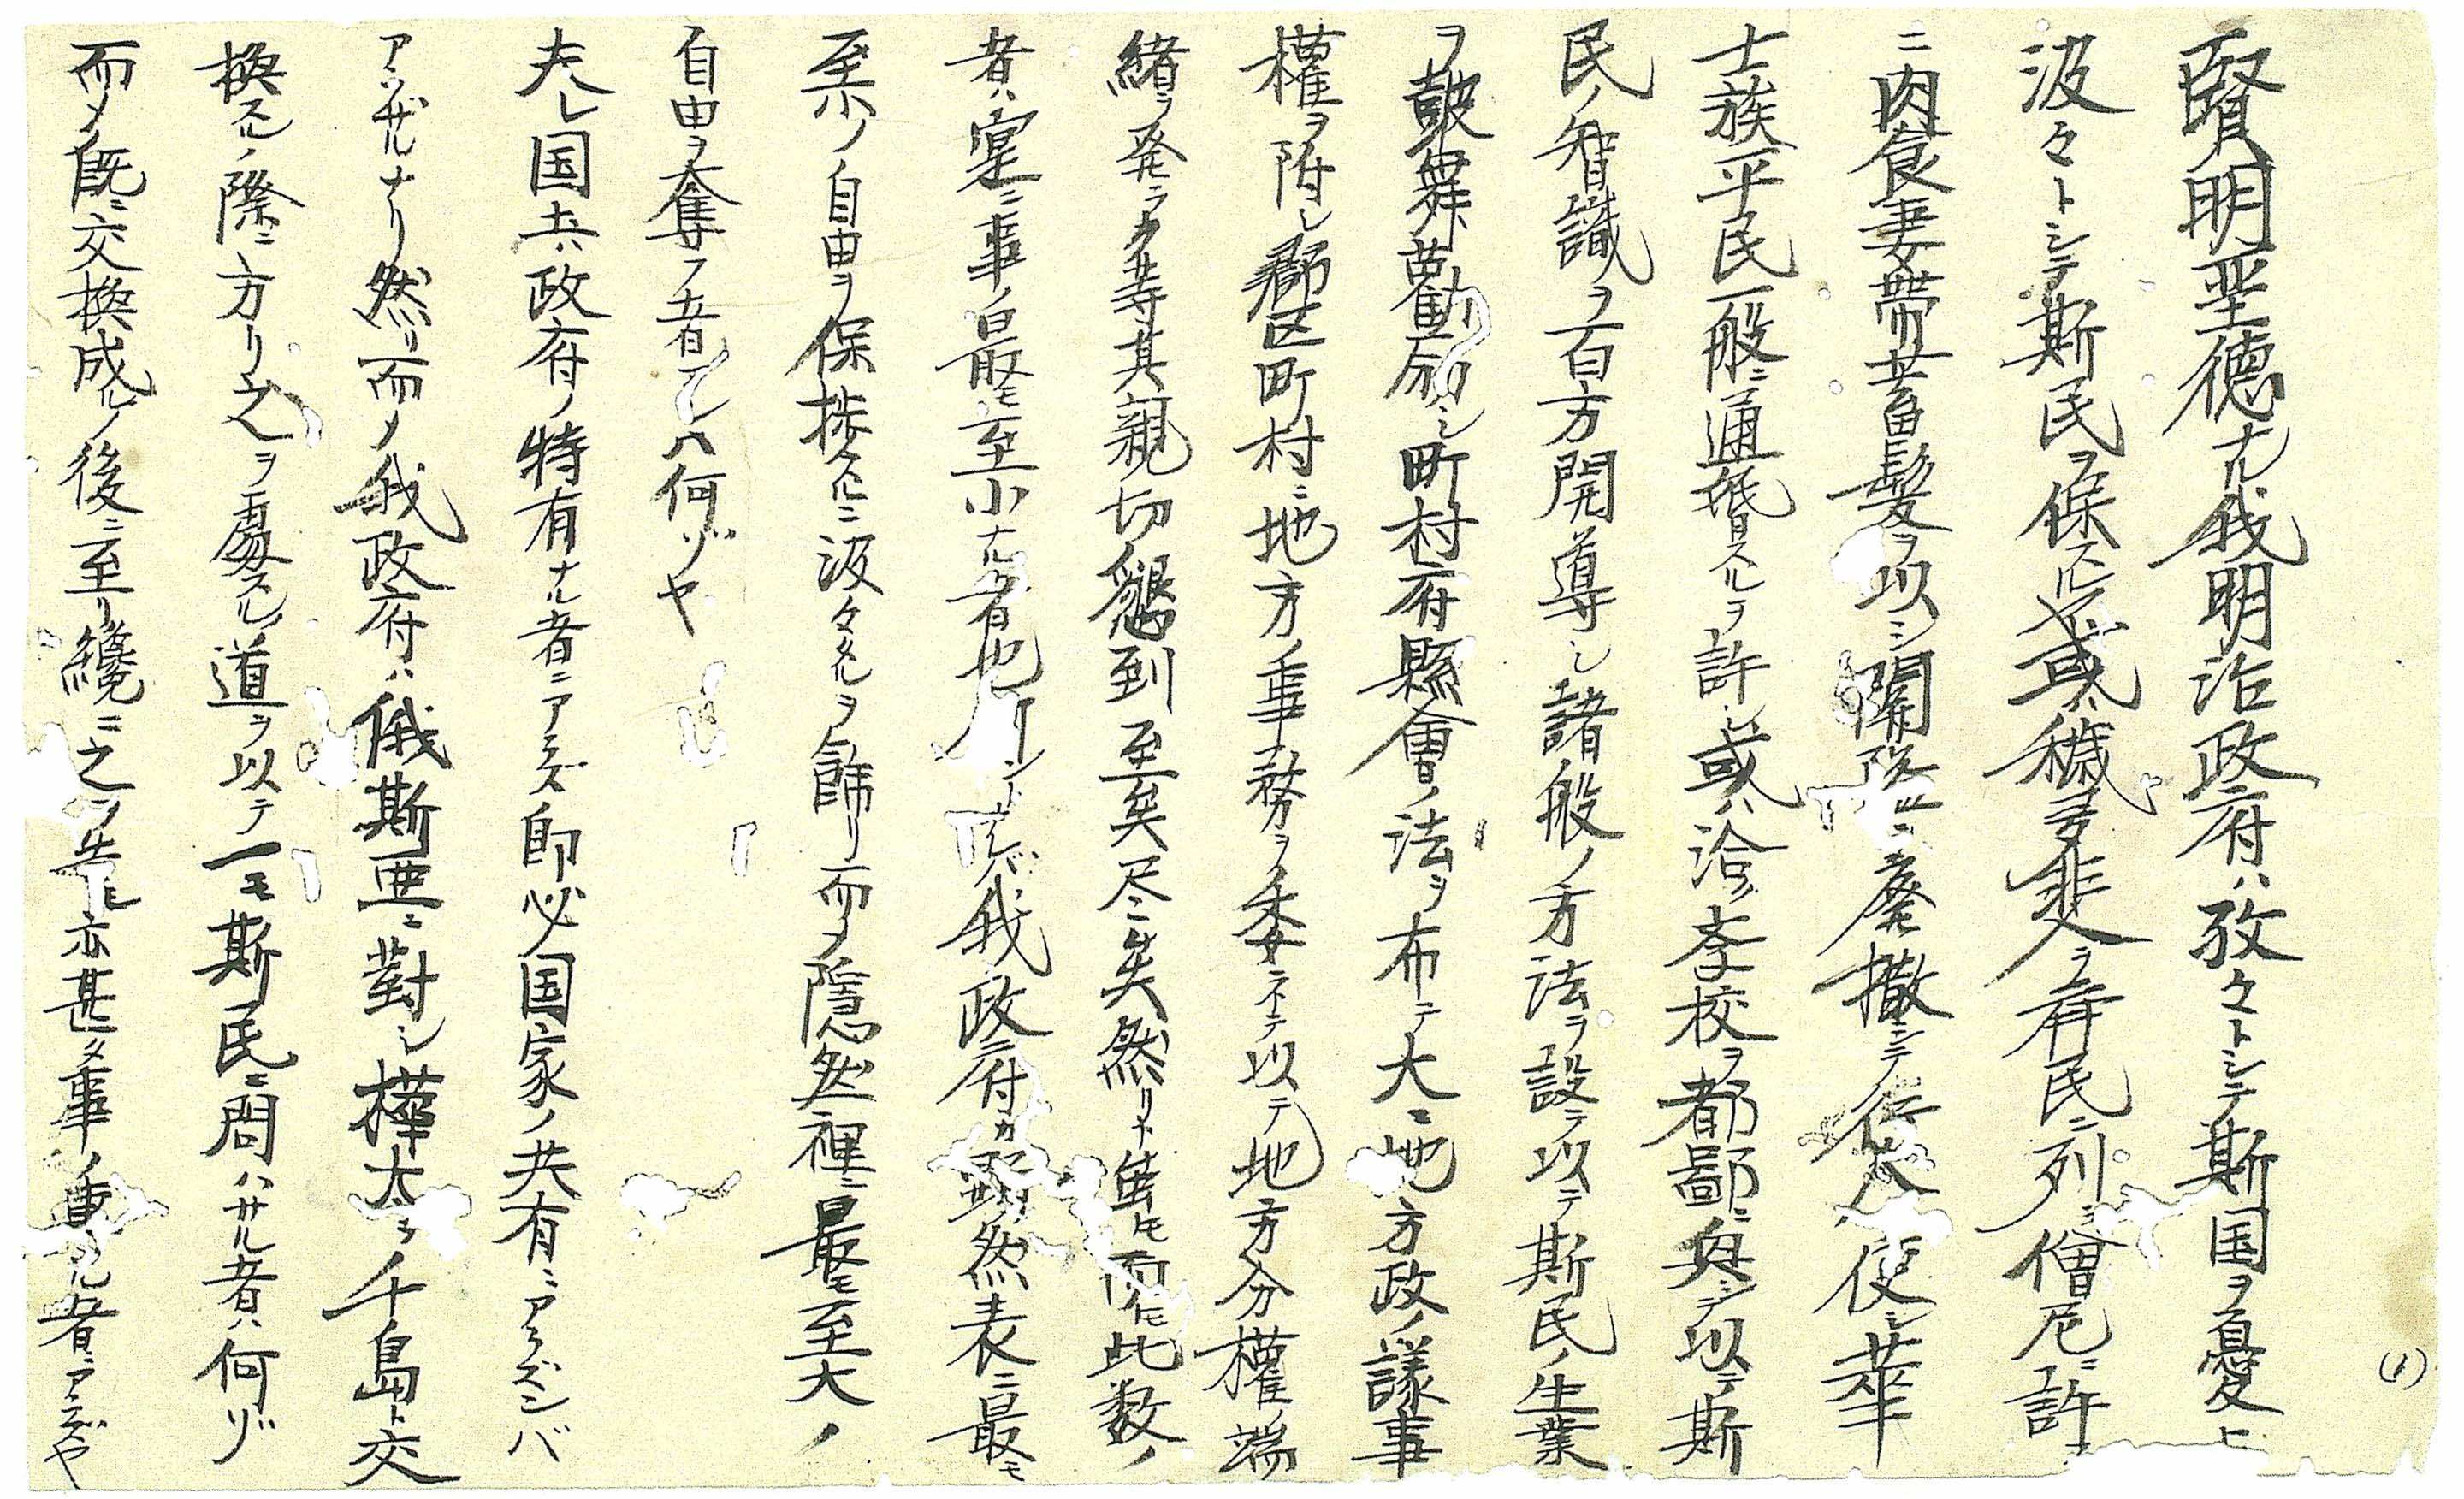 (1)
賢明聖徳ナル我明治政府ハ孜々トシテ斯国ヲ憂ヒ
汲々トシテ斯民ヲ保スルヤ或ハ穢多非人ヲ斉民ニ列シ僧尼ニ許
ニ肉食妻帯蓄髪ヲ以シ関 ヲ廃撤シテ行人 便シ華
士族平民一般ニ通婚スルヲ許シ或ハ洽ク李校ヲ都鄙ニ興シテ以テ斯
民ノ智識ヲ百方開導シ諸般ノ方法ヲ設テ以テ斯民ノ生業
ヲ皷舞勸励シ町村府縣會ノ法ヲ布テ大ニ地方政ノ議事
權ヲ附シ郡区町村ニ地方ノ事務ヲ委ネテ以テ地方分權ノ端
緒ヲ発ラク等其親切懇到至矣尽矣然リト雖モ而 モ此数ノ
者ハ寔ニ事ノ最モ至小ナル者也 我政府カ顕然表ニ最モ
至小ノ自由ヲ保持スルニ汲々タルヲ飾リ而メ隠然裡ニ最モ至大ノ
自由ヲ奪フ者 ハ何ゾヤ
夫レ国土ハ政府ノ特有ナル者ニアラズ即必国家ノ共有ニアラズンバ
アラザルナリ然リ而メ我政府ハ俄斯亜ニ對シ樺太ヲ千島ト交
換スルノ際ニ方リ之ヲ處スル道ヲ以テ一モ斯民ニ問ハサル者ハ何ゾ
而メ既ニ交換成ルノ後ニ至リ纔ニ之ヲ告 亦甚タ事ノ重 ル者ニアラズヤ